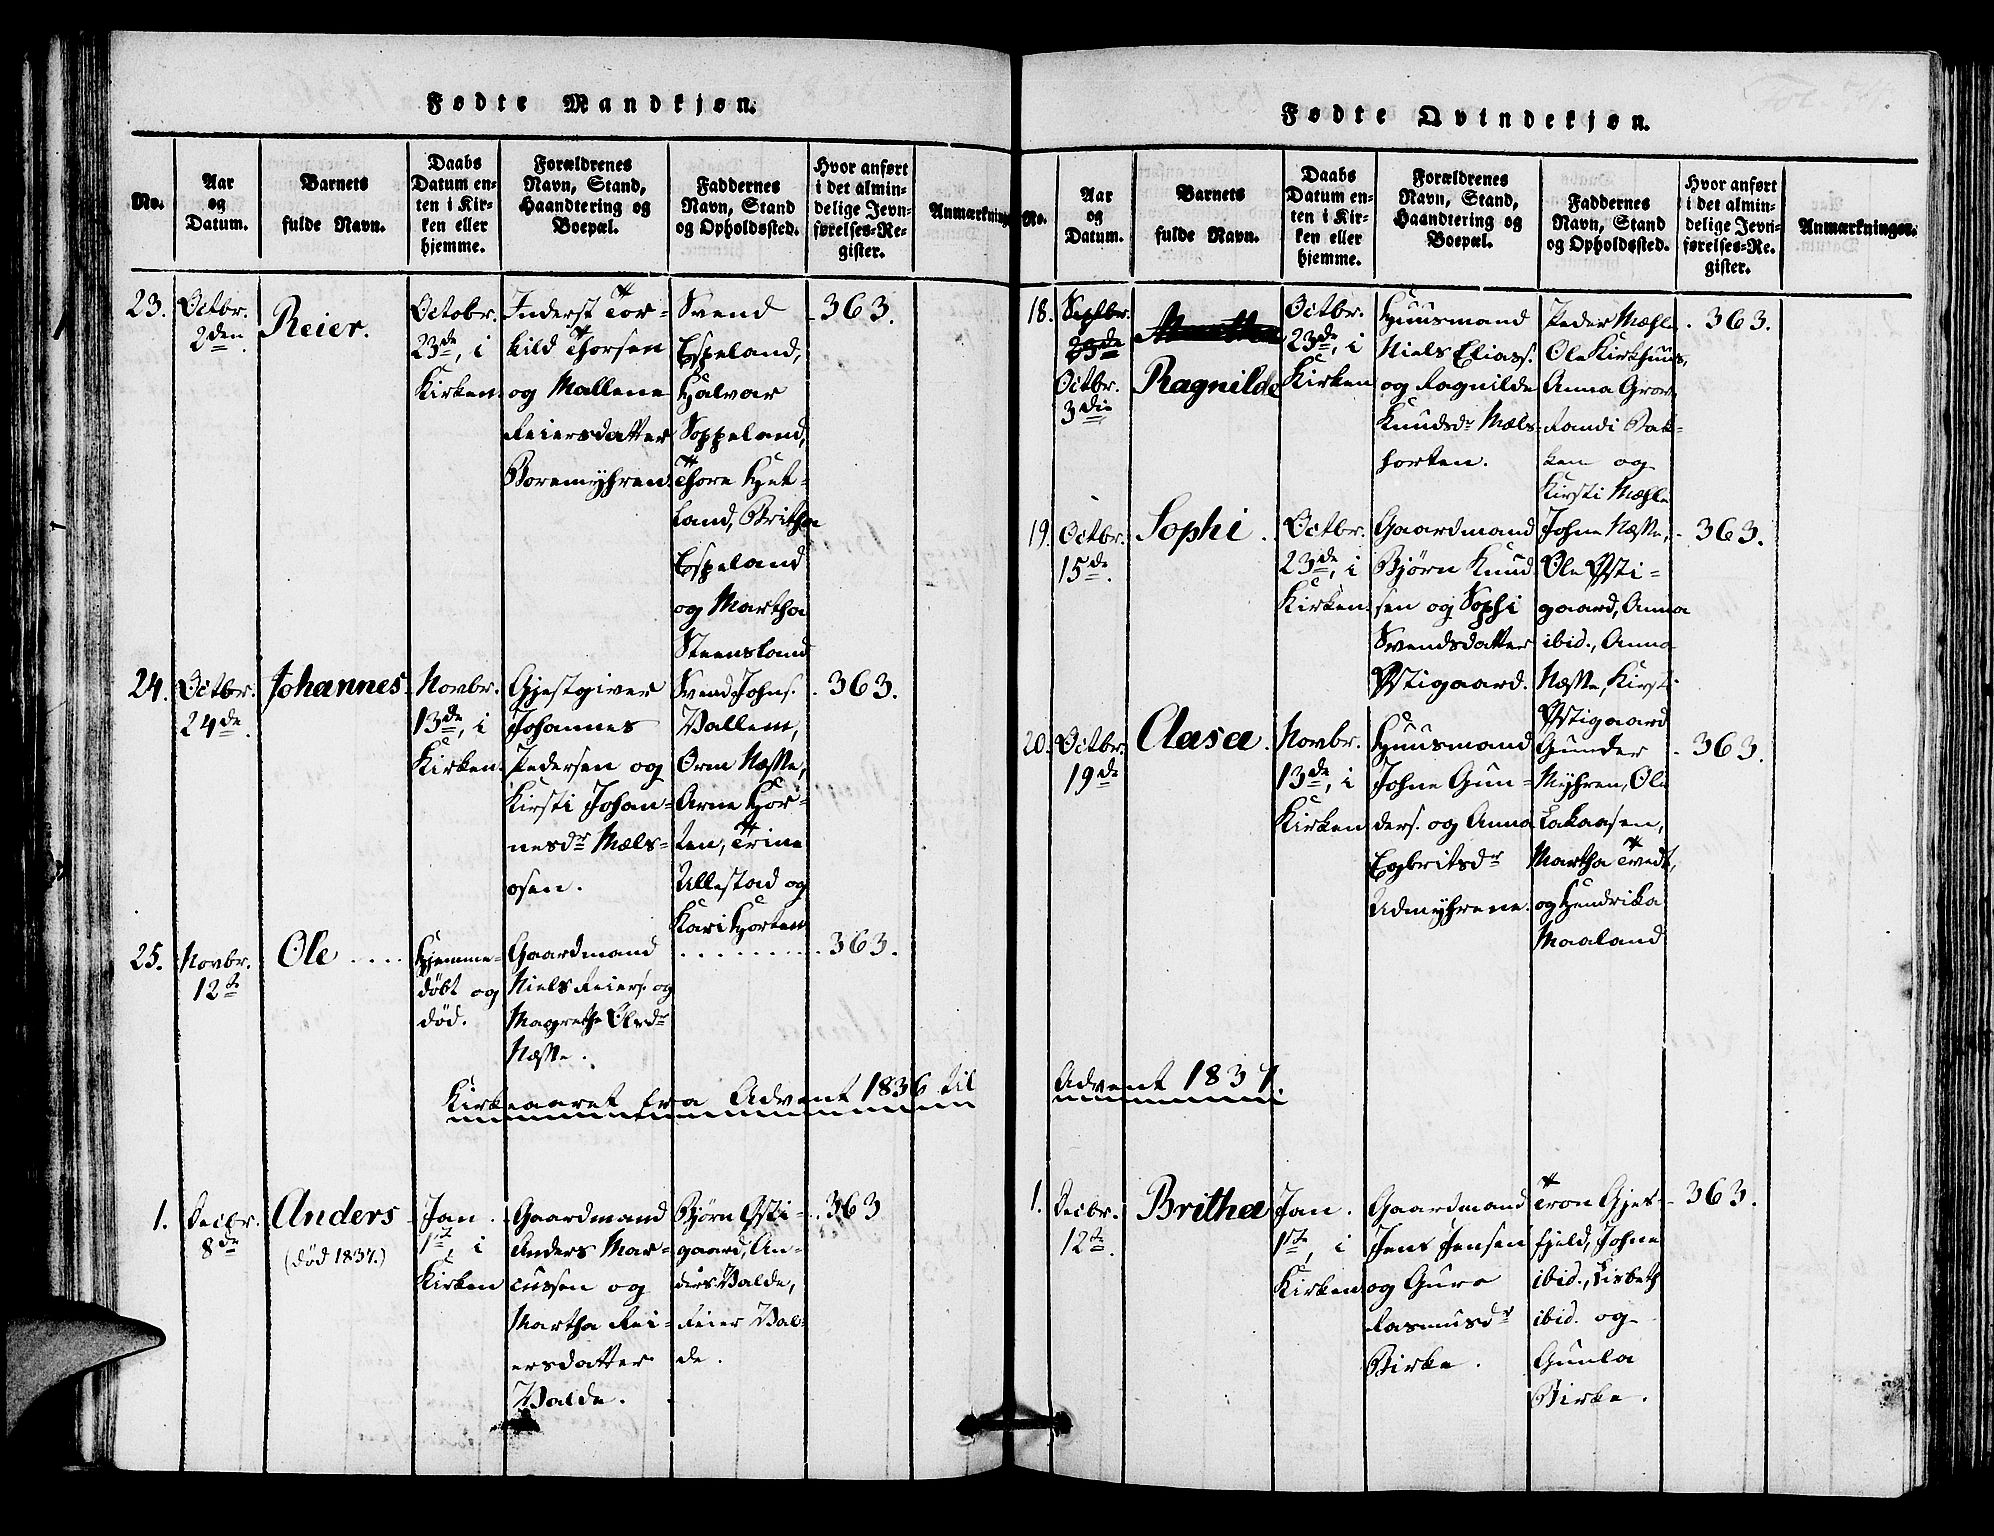 Fødte Mandkjøn.
No.
Aar
og
Datum.
Barnets
fulde Navn.
Daabs
Datum en-
ten i Kir-
ken eller
hjemme.
Forældrenes
Navn, Stand,
Haandtering og
Boepæl.
Faddernes
Navn, Stand
og Opholdssted.
Hvor anført
i det almin-
delige Jevn-
førelses-Re-
gister.
Anmærkning
23.
Octbr.
2den
Reier.
Octobr.
23de, i
Kirken
Inderst Tor-
kild Thorsen
og Mallene
Reiersdatter
Boremyhren
Svend
Espeland,
Halvar
Soppeland,
Thore Het-
land, Britha
Espeland
og Martha
Steensland
363.
24.
Octbr.
24de
Johannes
Novbr.
13de, i
Kirken
Gjestgiver
Johannes
Pedersen og
Kirsti Johan-
nesdr Mæls-
osen.
Svend Johns.
Vallem,
Orm Næsse,
Arne Hor-
ten, Trine
Ullestad og
Kari Horten
363.
25.
Novbr.
12te
Ole ....
Hjemme-
døbt og
død.
Gaardmand
Niels Reiers. og
Magrethe Olsdr
Næsse.
363.
Kirkeaaret fra Advent 1836 til
1.
Decbr.
8de
Anders
(død 1837.)
Jan.
1ste, i
Kirken
Gaardmand
Anders Mar-
cussen og
Martha Rei-
ersdatter
Valde.
Bjørn Østi-
gaard, An-
ders Valde,
Reier Val-
de.
363
Fødte Qvindekjøn.
No.
Aar
og
Datum.
Barnets
fulde Navn.
Daabs
Datum en-
ten i Kir-
ken eller
hjemme.
Forældrenes
Navn, Stand,
Haandtering og
Boepæl.
Faddernes
Navn, Stand
og Opholdssted.
Hvor anført
i det almin-
delige Jevn-
førelses-Re-
gister.
Anmærkninger.
18.
Septbr.
23de
Octbr.
3die
Ragnilde
Octbr.
23de, i
Kirken
Huusmand
Niels Elias.
og Ragnilde
Knudsdr Mæls-
horten.
Peder Mæhle
Ole Kirkhuus,
Anna Grov
Randi Bak-
ken og
Kirsti Mæhle
363.
19.
Octbr.
15de
Sophi.
Octbr.
23de, i
Kirken
Gaardmand
Bjørn Knud
sen og Sophi
Svendsdatter
Østigaard.
Johne Næsse,
Ole Østi-
gaard, Anna
ibid., Anna
Næsse, Kirsti
Østigaard
363.
20.
Octbr.
19de
Clasa.
Novbr.
13de, i
Kirken
Huusmand
Johne Gun-
ders. og Anna
Egbritsdr
Udmyhrene.
Gunder
Myhren, Ole
Lakaasen,
Martha Tvedt,
og Hendrika
Maaland
363.
Advent 1837.
1.
Decbr.
12te
Britha
Jan.
1ste, i
Kirken
Gaardmand
Jens Jensen
og Guro
Rasmusdr
Birke.
Tron Gjes-
fjeld, Johne
ibid., Lisbeth
ibid. og
Gunla
Birke.
363.